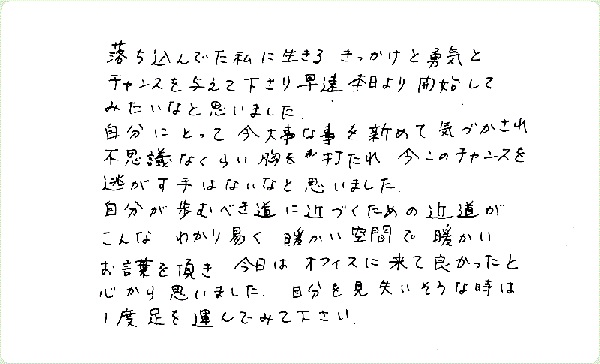 落ち込んでた私に生きる きっかけと勇気と
チャンスを与えて下さり早速本日より開始して
みたいなと思いました。
自分にとって今大事な事を新めて気づかされ
不思議なくらい胸を打たれ 今このチャンスを
逃がす手はないなと思いました。
自分が歩むべき道に近づくための近道が
こんな わかり易く 暖かい空間で 暖かい
お言葉を頂き 今日は オフィスに来て良かったと
心から思いました。 自分を見失いそうな時は
1度足を運んでみて下さい。